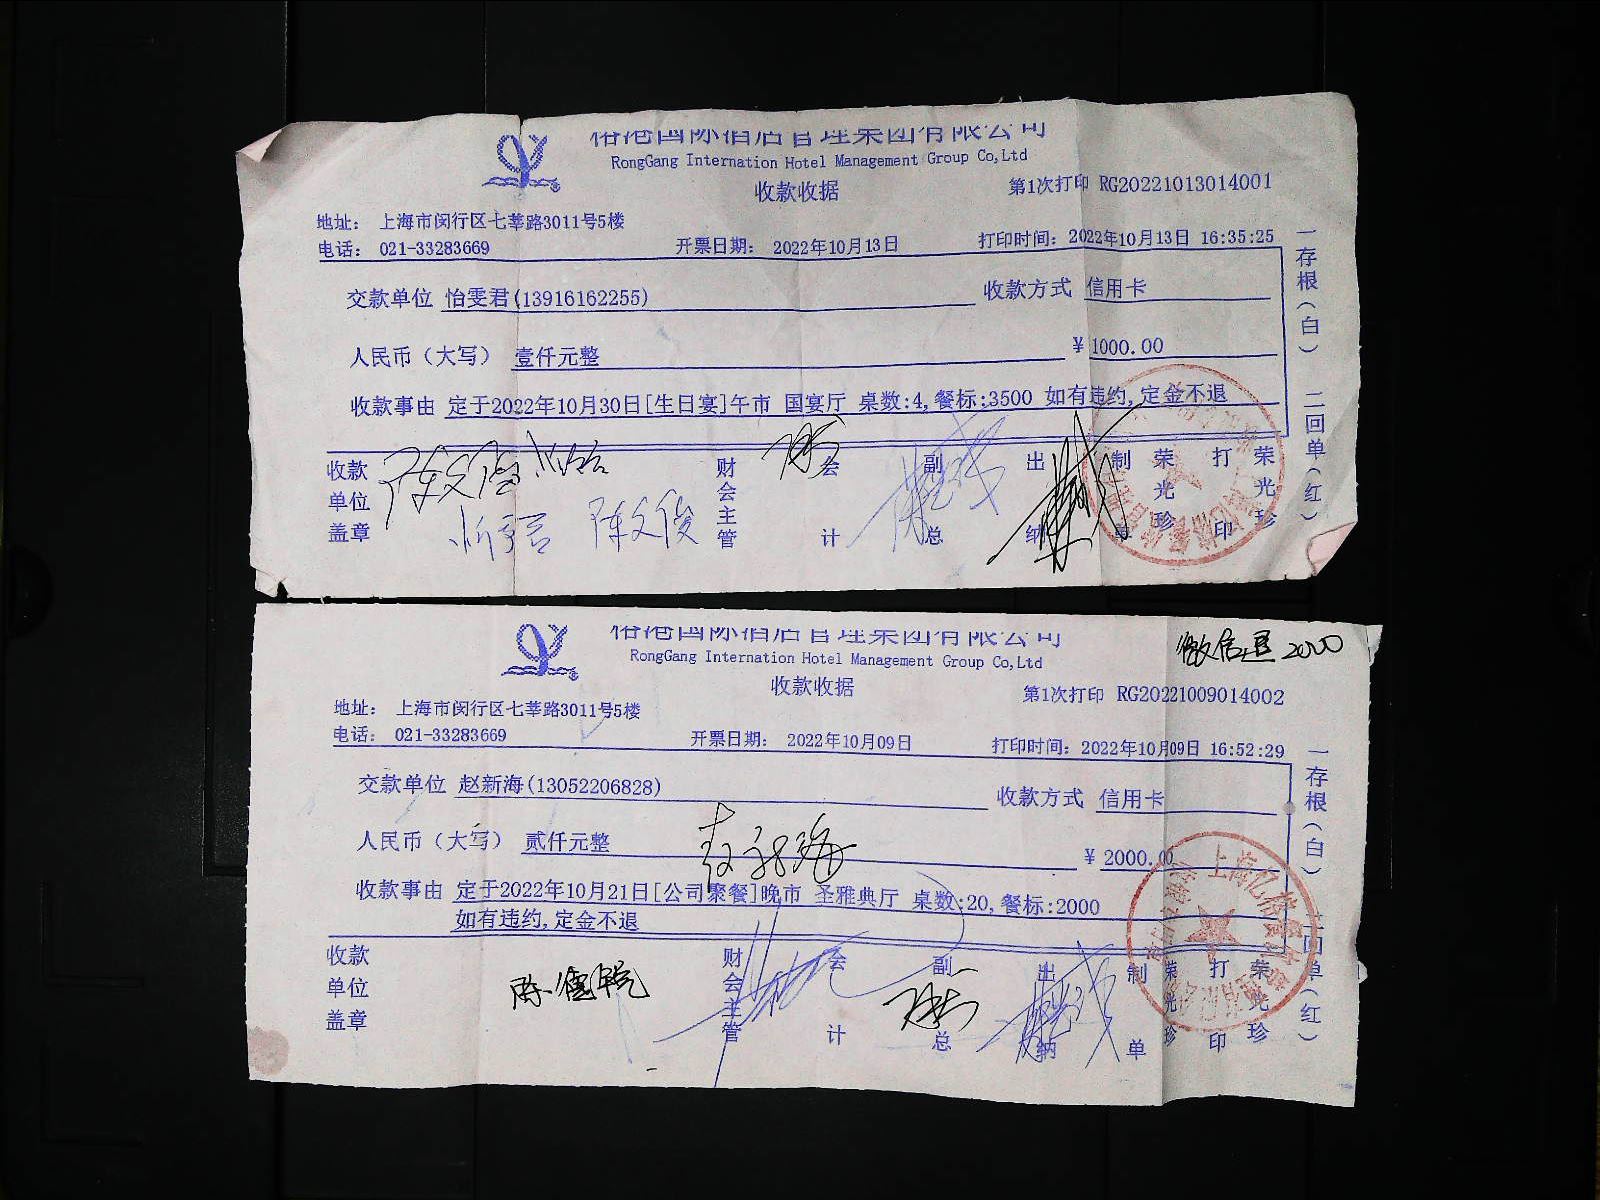 国际酒店管理集团有限公司
RongGang Internation Hotel Management Group Co,Ltd
收款收据
第1次打印 RG20221013014001
地址： 上海市闵行区七莘路3011号5楼
电话： 021-33283669 开票日期： 2022年10月13日 打印时间：2022年10月13日 16:35:25
交款单位 怡雯君(13916162255) 收款方式 信用卡
人民币（大写） 壹仟元整 ¥ 1000.00
收款事由 定于2022年10月30日[生日宴]午市 国宴厅 桌数:4,餐标:3500 如有违约,定金不退
收款单位盖章 陈文俊 财会主管 会计 副总 出纳 制单 荣光珍 打印 荣光珍
一存根（白） 二回单（红）
国际酒店管理集团有限公司
RongGang Internation Hotel Management Group Co,Ltd
微信 2000
收款收据
第1次打印 RG20221009014002
地址： 上海市闵行区七莘路3011号5楼
电话： 021-33283669 开票日期： 2022年10月09日 打印时间：2022年10月09日 16:52:29
交款单位 赵新海(13052206828) 收款方式 信用卡
人民币（大写） 贰仟元整 ¥ 2000.00
赵新海
收款事由 定于2022年10月21日[公司聚餐]晚市 圣雅典厅 桌数:20,餐标:2000
如有违约,定金不退
收款单位盖章 财会主管 会计 副总 出纳 制单 荣光珍 打印 荣光珍
一存根（白） 二回单（红）